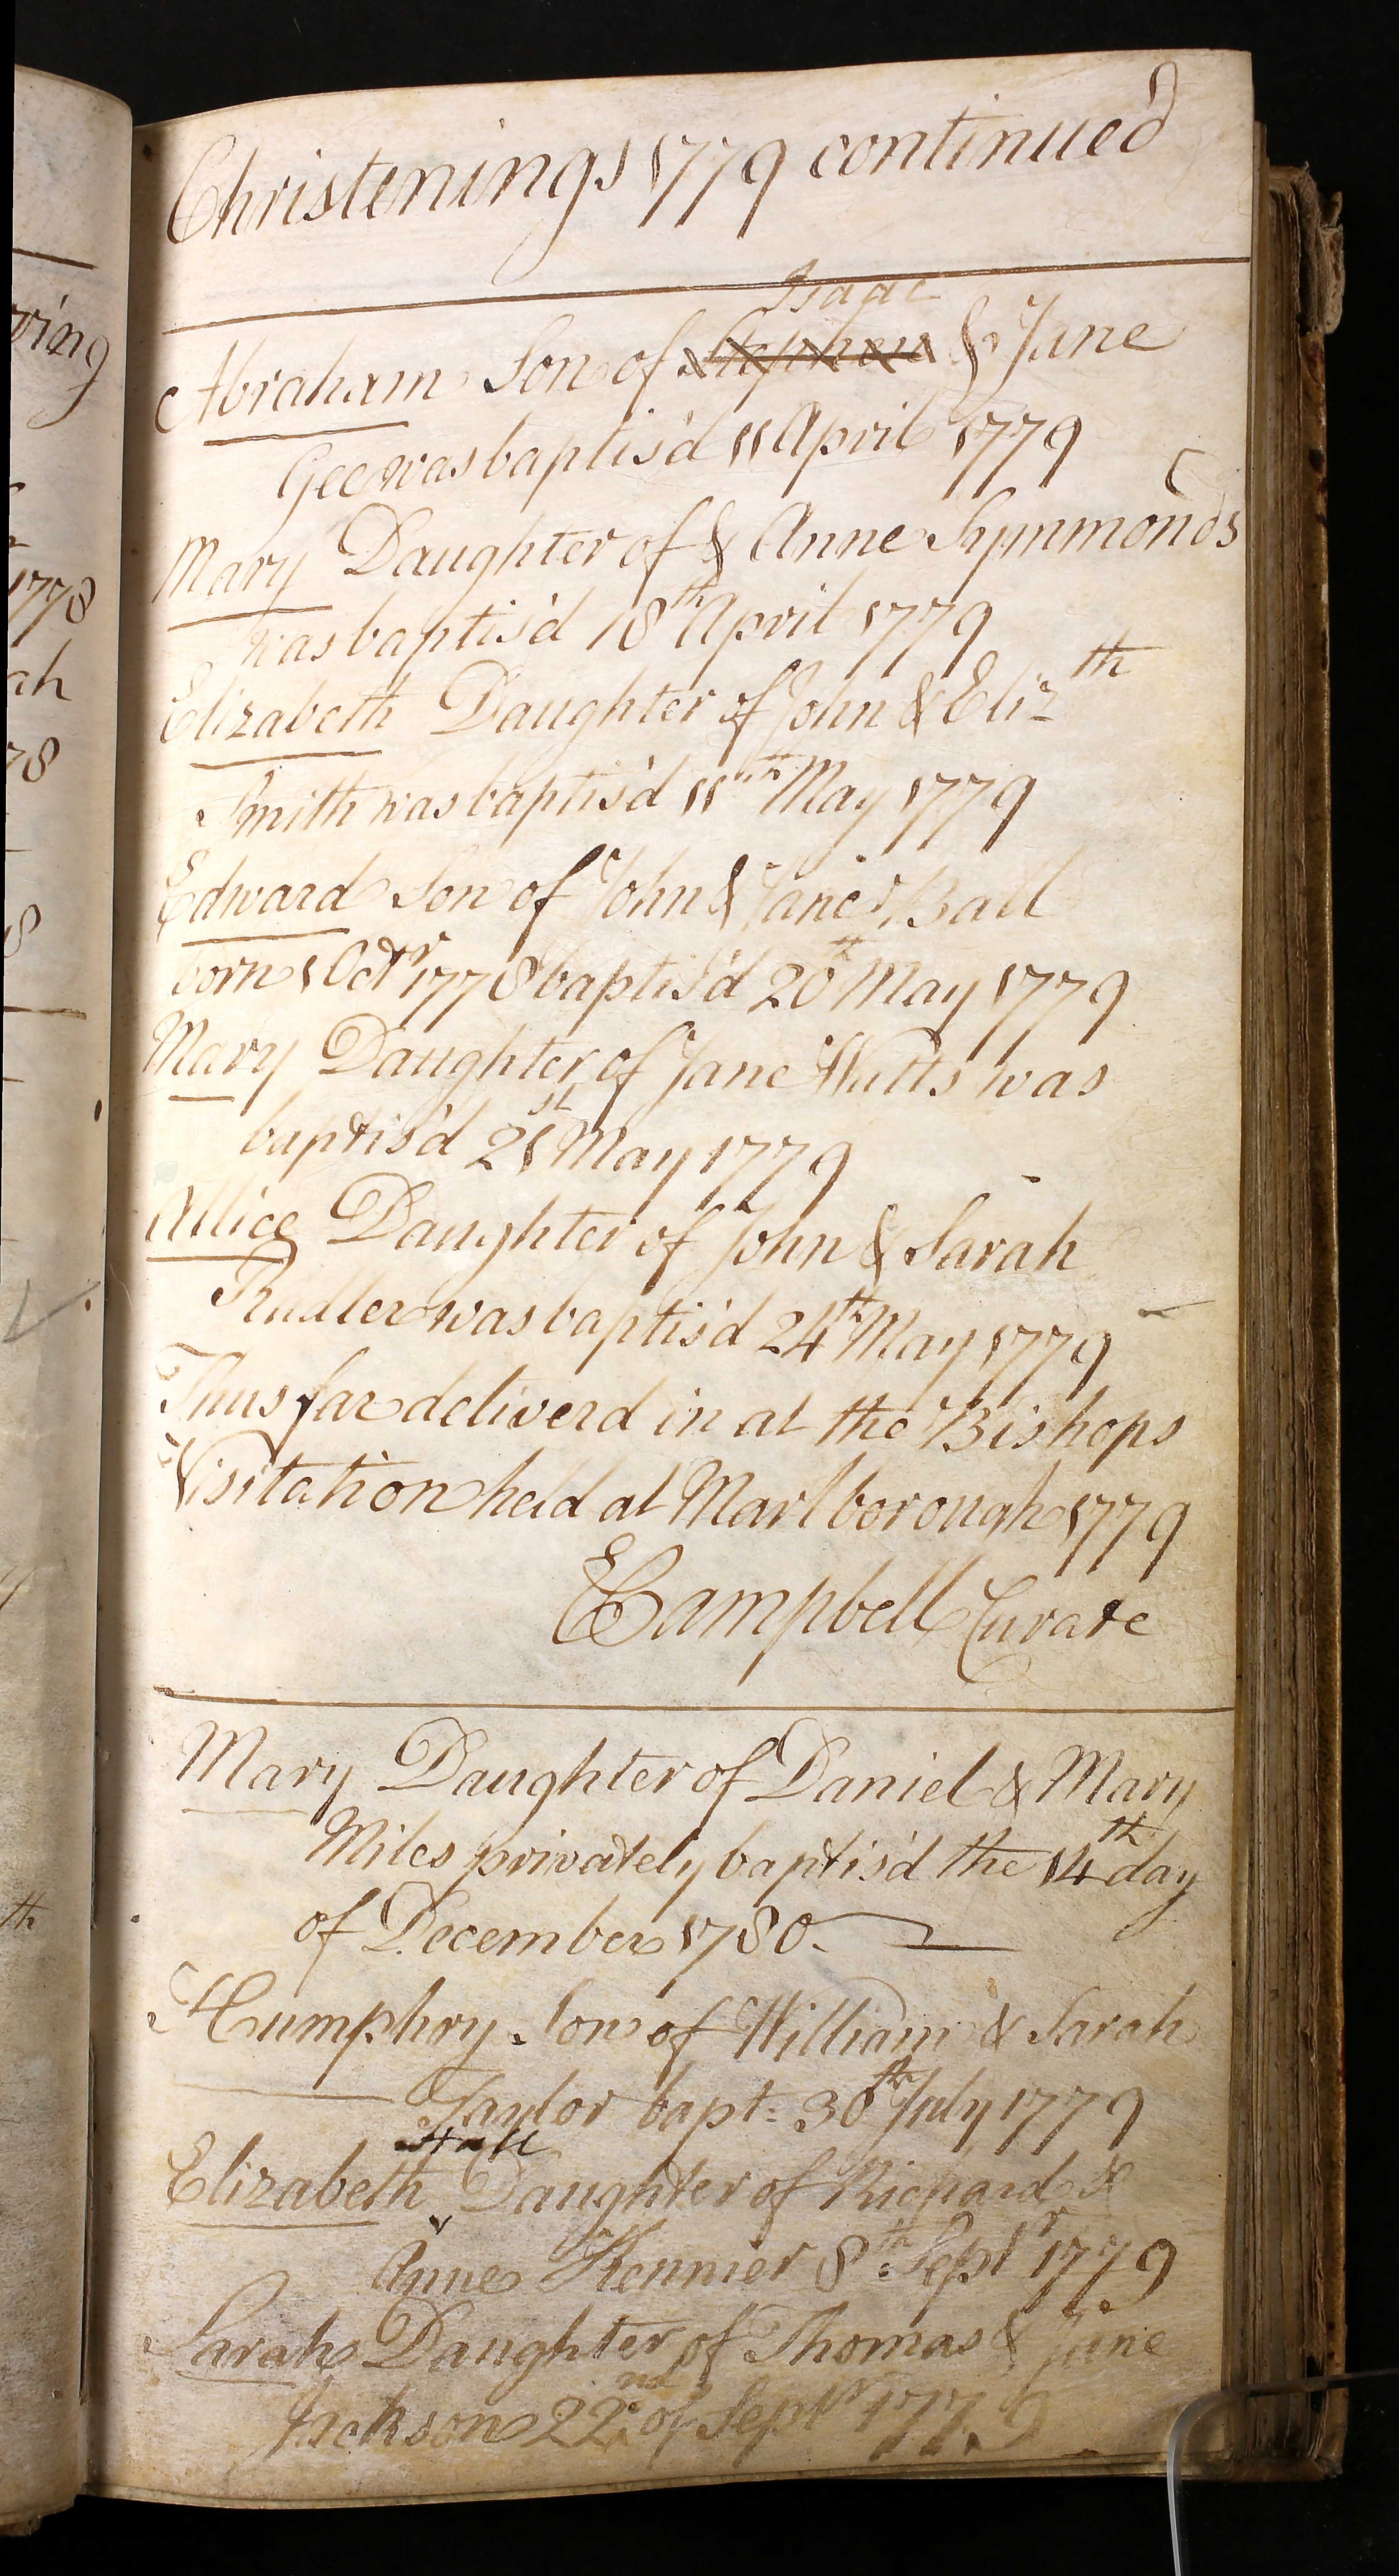 Christenings 1779 continued
Isaac
Abraham Son of Stephen & Jane
Gee was baptis'd 11 April 1779
Mary Daughter of & Anne Symmonds
was baptis'd 18th April 1779
Elizabeth Daughter of John & Elizth
Smith was baptis'd 11th May 1779
Edward Son of John & Jane Ball
born 1 Octr 1778 baptis'd 20th May 1779
Mary Daughter of Jane Watts was
baptis'd 21st May 1779
Allice Daughter of John & Sarah
was baptis'd 24th May 1779
Thus far deliverd in at the Bishops
Visitation held at Marlborough 1779
E Campbell Curate
Mary Daughter of Daniel & Mary
Miles privately baptis'd the 14th day
of December 1780.
Humphry Son of William & Sarah
Taylor bapt: 30th July 1779
Hall
Elizabeth Daughter of Richard &
Anne 8th Septr 1779
Sarah Daughter of Thomas & Jane
Jackson 22nd of Septr 1779
ving
1778
ah
78
8
th